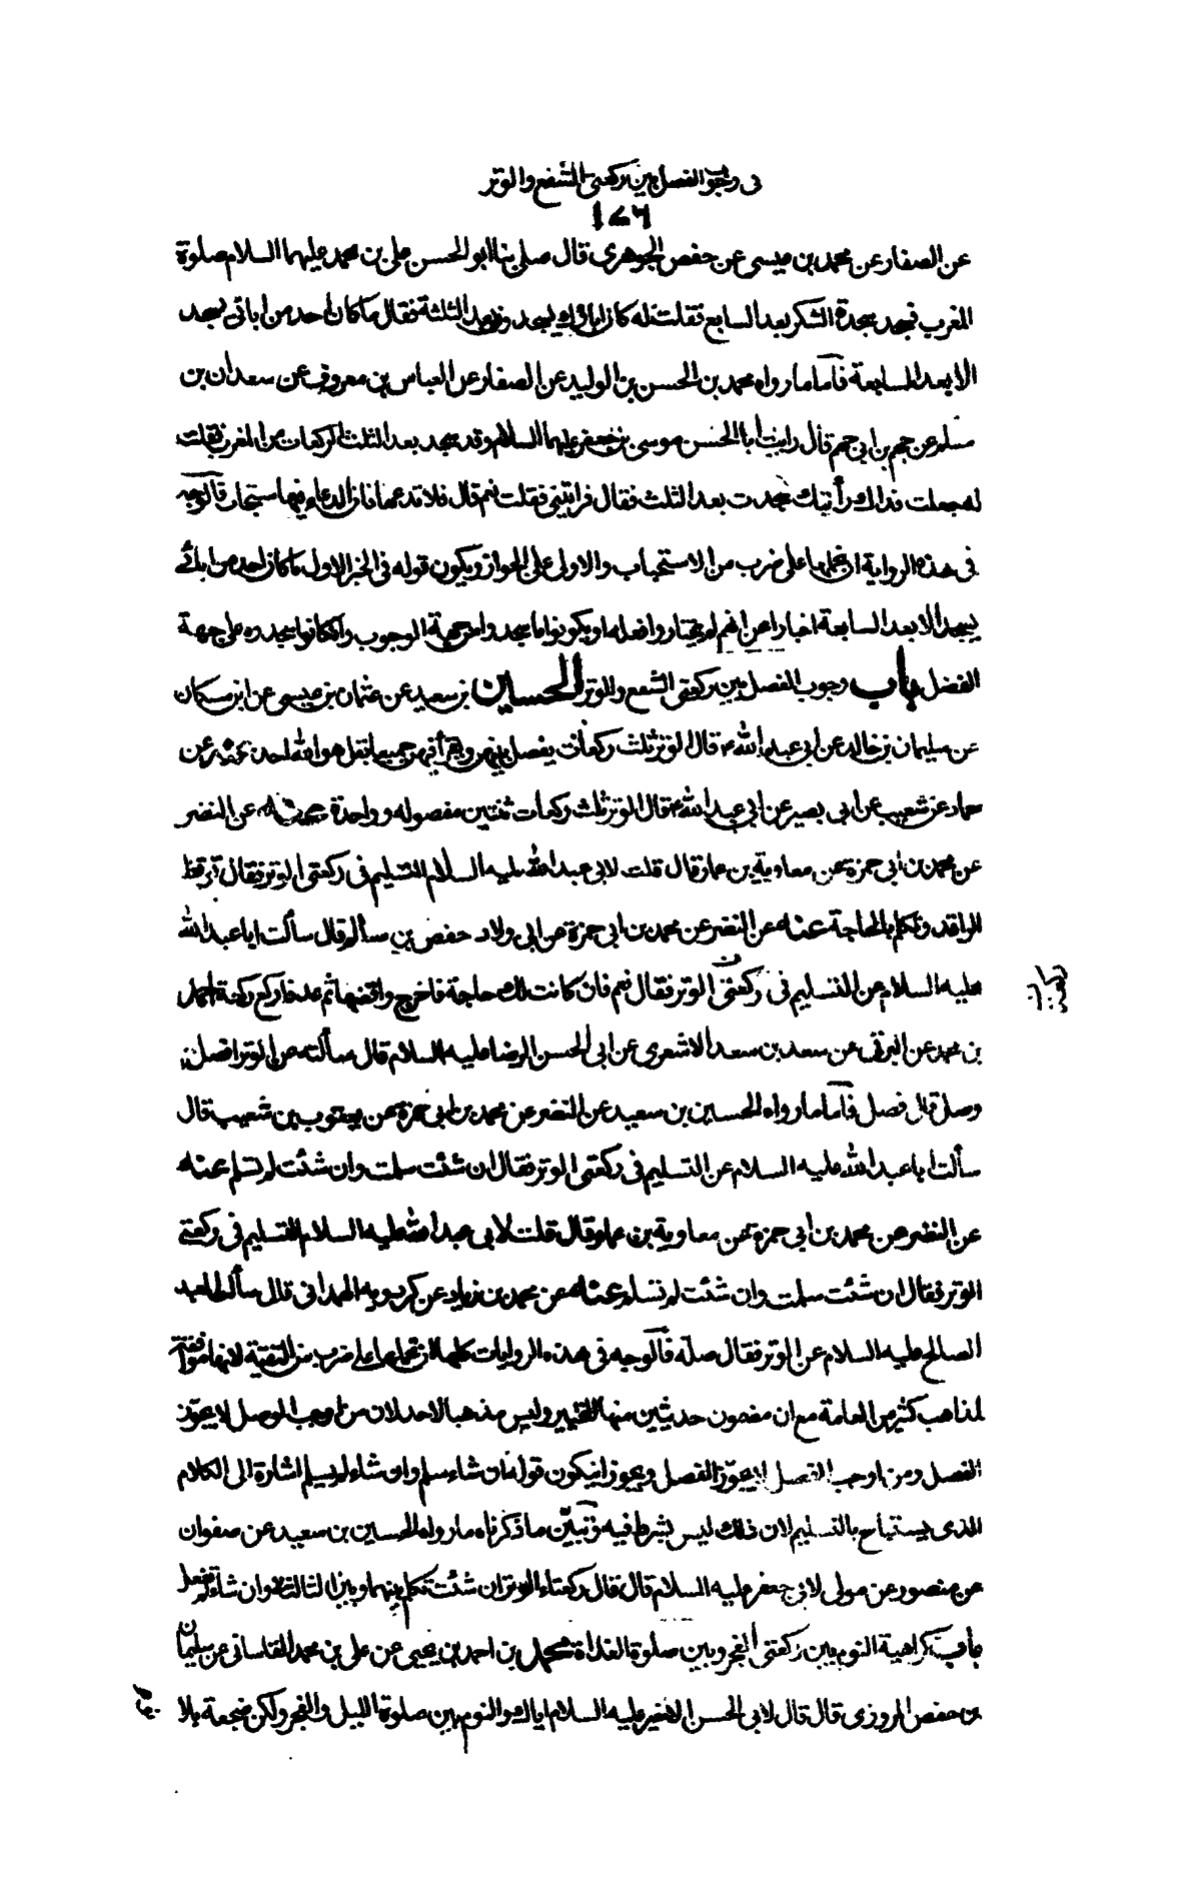 فى وجوب الفصل بين ركعتى الشفع والوتر
١٧٦
عن الصفار عن محمد بن عيسى عن حفص الجوهرى قال صلى بنا ابو الحسن على بن محمد عليهما السلام صلوة
المغرب فسجد سجدة الشكر بعد السابعة فقلت له كان اباؤك يسجدون بعد الثلثة فقال ما كان احد من ابائى يسجد
الا بعد السابعة فاما ما رواه محمد بن الحسن بن الوليد عن الصفار عن العباس بن معروف عن سعدان بن
مسلم عن جهم بن ابى جهم قال رايت ابا الحسن موسى بن جعفر عليهما السلام وقد سجد بعد الثلث الركعات من المغرب فقلت
له جعلت فداك رأيتك سجدت بعد الثلث فقال ورايتنى فقلت نعم قال فلا تدعها فان الدعاء فيها مستجاب فالوجه
فى هذه الرواية ان نحملها على ضرب من الاستحباب والاولى على الجواز ويكون قوله فى الخبر الاول ما كان احد من ابائى
يسجد الا بعد السابعة اخبارا عن انهم لم يختاروا فعله او يكونوا ما سجدوا من جهة الوجوب وان كانوا سجدوه على جهة
الفضل باب وجوب الفصل بين ركعتى الشفع والوتر الحسين بن سعيد عن عثمان بن عيسى عن ابن مسكان
عن سليمان بن خالد عن ابى عبد الله ع قال الوتر ثلث ركعات يفصل بينهن ويقرأ فيهن جميعا بقل هو الله احد عنه عن
حماد عن شعيب عن ابى بصير عن ابى عبد الله ع قال الوتر ثلث ركعات ثنتين مفصوله وواحدة عنه عن النضر
عن محمد بن ابى حمزة عن معاوية بن عمار قال قلت لابى عبد الله عليه السلام التسليم فى ركعتى الوتر فقال توقظ
الراقد وتكلم بالحاجة عنه عن النضر عن محمد بن ابى حمزة عن ابى ولاد حفص بن سالم قال سألت ابا عبد الله
عليه السلام عن التسليم فى ركعتى الوتر فقال نعم فان كانت لك حاجة فاخرج واقضها ثم عد فاركع ركعة احمد
بن محمد عن البرقى عن سعد بن سعد الاشعرى عن ابى الحسن الرضا عليه السلام قال سألته عن الوتر افصل ام
وصل قال فصل فاما ما رواه الحسين بن سعيد عن النضر عن محمد بن ابى حمزة عن يعقوب بن شعيب قال
سألت ابا عبد الله عليه السلام عن التسليم فى ركعتى الوتر فقال ان شئت سلمت وان شئت لم تسلم عنه
عن النضر عن محمد بن ابى حمزة عن معاوية بن عمار قال قلت لابى عبد الله عليه السلام التسليم فى ركعتى
الوتر فقال ان شئت سلمت وان شئت لم تسلم عنه عن محمد بن زياد عن كردويه الهمدانى قال سألت العبد
الصالح عليه السلام عن الوتر فقال صله فالوجه فى هذه الروايات كلها ان نحملها على ضرب من التقية لانها موافقة
لمذاهب كثير من العامة مع ان مضمون حديثين منها التخيير وليس مذهبا لاحد لان من اوجب الوصل لا يجوز
الفصل ومن اوجب الفصل لا يجوز الفصل ويجوز ان يكون قوله ان شاء سلم وان شاء لم يسلم اشارة الى الكلام
الذى يستباح بالتسليم لان ذلك ليس بشرط فيه وتبين ما ذكرناه ما رواه الحسين بن سعيد عن صفوان
عن منصور عن مولى لابى جعفر عليه السلام قال قال ركعتا الوتر ان شئت تكلم بينهما وبين الثالثة وان شاء لم تفعل
باب كراهية النوم بين ركعتى الفجر وبين صلوة الغداة محمد بن احمد بن يحيى عن على بن محمد القاسانى عن سليمان
بن حفص المروزى قال قال لابى الحسن الاخير عليه السلام اياك والنوم بين صلوة الليل والفجر ولكن ضجعة بلا